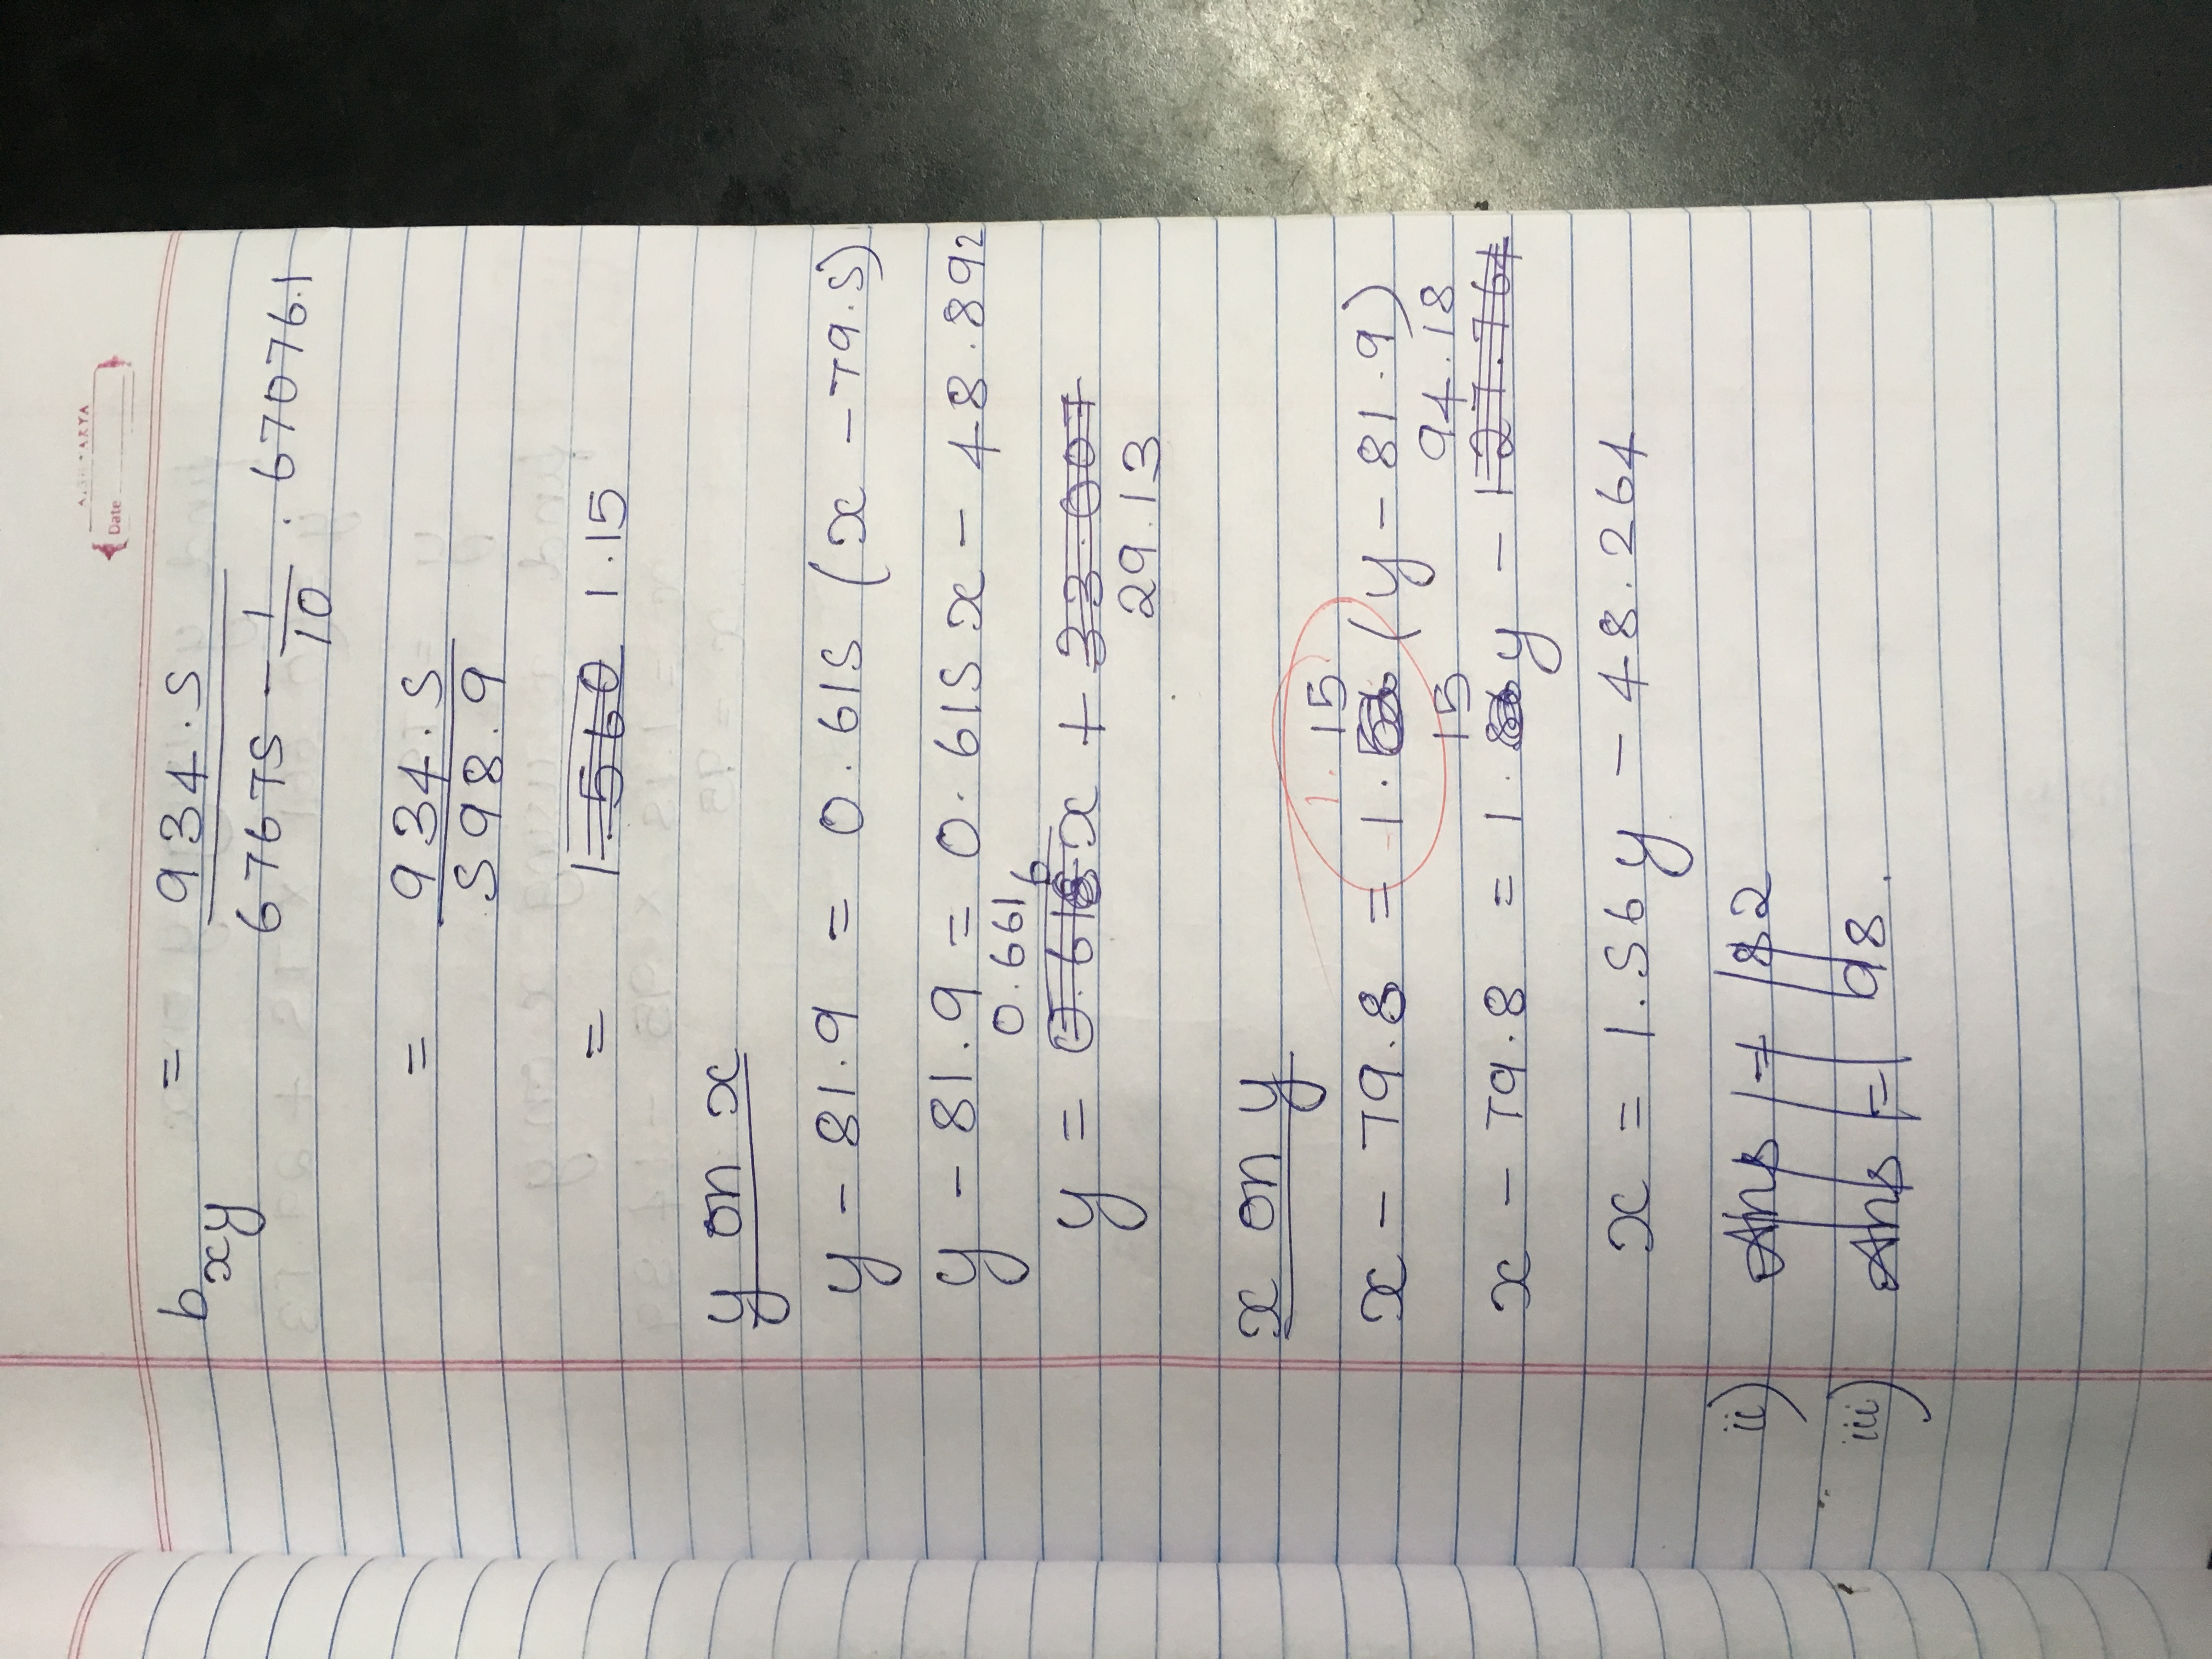 Date
b_xy = 934.5 / 67675 - 1/10 . 670761
= 934.5 / 598.9
= 1.560 1.15
y on x
y - 81.9 = 0.615 (x - 79.5)
y - 81.9 = 0.615x - 48.892
0.6616
y = x + 33.007
29.13
x on y
1. 15
x - 79.8 = 1. (y - 81.9)
15 94.18
x - 79.8 = 1. y - 127.764
x = 1.56y - 48.264
ii) Ans = 82
iii) Ans = 98.